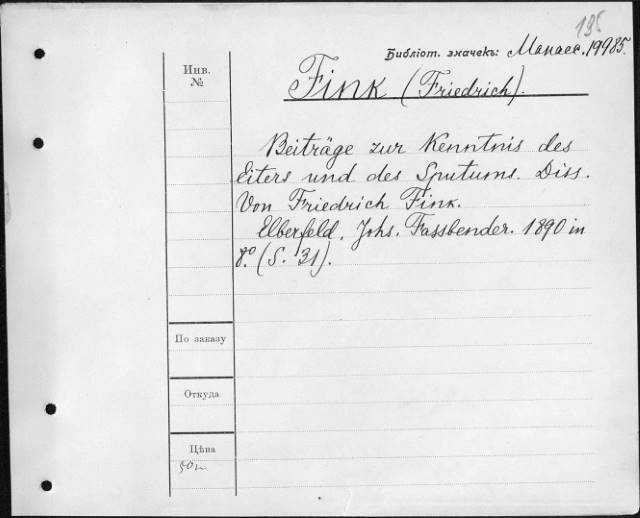 195
Библіот. значекъ: Манасс. 19985.
Инв.
№
Fink (Friedrich).
Beiträge zur Kenntnis des
Eiters und des Sputums. Diss.
Von Friedrich Fink.
Elberfeld. Johs. Fassbender. 1890 in
8.º (S. 31).
По заказу
Откуда
Цѣна